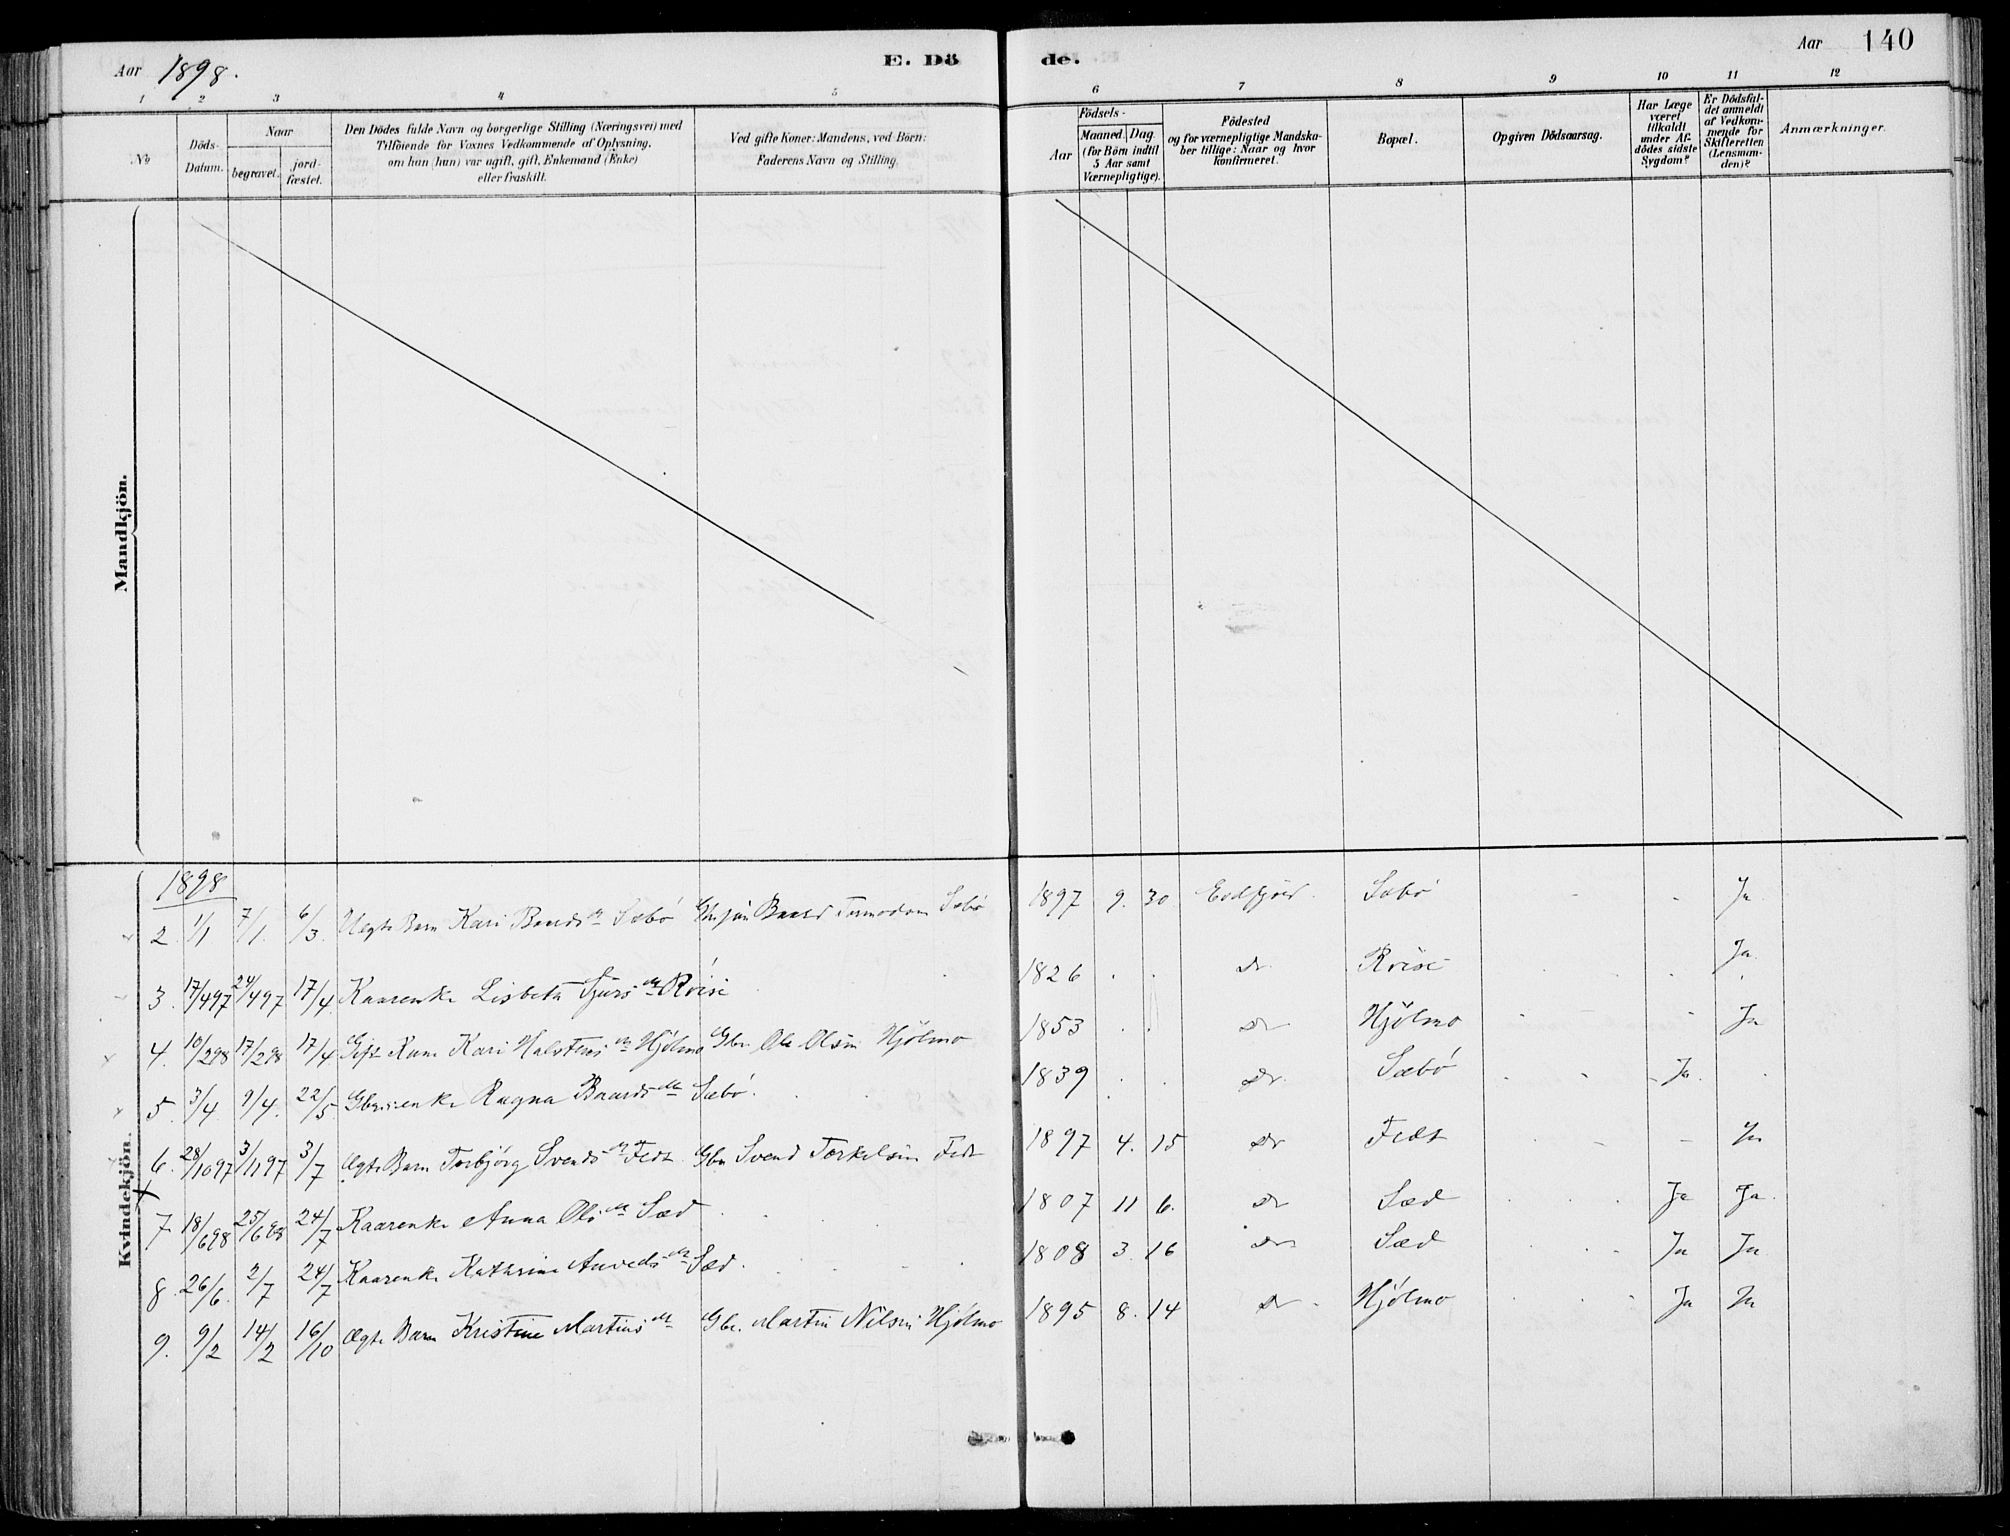 Aar 1898.
E. Dö
de.
Aar 140
1 2 3 4 5 6 7 8 9 10 11 12
No
Döds-Datum.
Naar
begravet.
jord-fæstet.
Den Dödes fulde Navn og borgerlige Stilling (Næringsvei) med
Tilföiende for Voxnes Vedkommende af Oplysning,
om han (hun) var ugift, gift, Enkemand (Enke)
eller fraskilt.
Ved gifte Koner: Mandens, ved Börn:
Faderens Navn og Stilling.
Födsels-
Aar
Maaned. Dag.
(for Börn indtil
5 Aar samt
Værnepligtige).
Födested
og for værnepligtige Mandska-
ber tillige: Naar og hvor
konfirmeret.
Bopæl.
Opgiven Dödsaarsag.
Har Læge
været
tilkaldt
under Af-
dödes sidste
Sygdom?
Er Dödsfal-
det anmeldt
af Vedkom-
mende for
Skifteretten
(Lensman-
den)?
Anmærkninger.
Mandkjön.
Kvindekjön.
1898
2. 1/1 7/1. 6/3. Uegte Barn Kari Baardsdr Sæbø Baard Sæbø 1897 9. 30 Eidfjord. Sæbø Ja.
3. 17/4 97 24/4 97 17/4. Kaarenke Lisbeta Sjursdr Röise 1826 . . Do. Röise Ja.
4. 10/2 98 17/2 98 17/4 Gift Kone Kari Halstensdr Hjölmo Gbr. Ole Olsen Hjölmo 1853 . . Do Hjölmo Ja
5. 3/4. 9/4. 22/5. Gbrenke Ragna Baardsdr Sæbø. 1839 . . Do. Sæbø Ja.
6. 28/10 97 3/11 97 3/7 Ægte Barn Torbjörg Svendsdr Fedt Gbr. Svend Torkelsen Fedt 1897 4. 15 Do Fedt Ja
7 18/6 98 25/6 98 24/7 Kaarenke Anna Olsdr Sæd 1807 11 6. Do Sæd Ja Ja.
8. 26/6. 2/7 24/7 Kaarenke Kathrine Sæd. 1808 3. 16 Do Sæd Ja Ja.
9. 9/2 14/2 16/10 Ægte Barn Kristine Martinsdr Gbr. Martin Nilsen Hjölmo 1895 8. 14 Do. Hjölmo Ja Ja